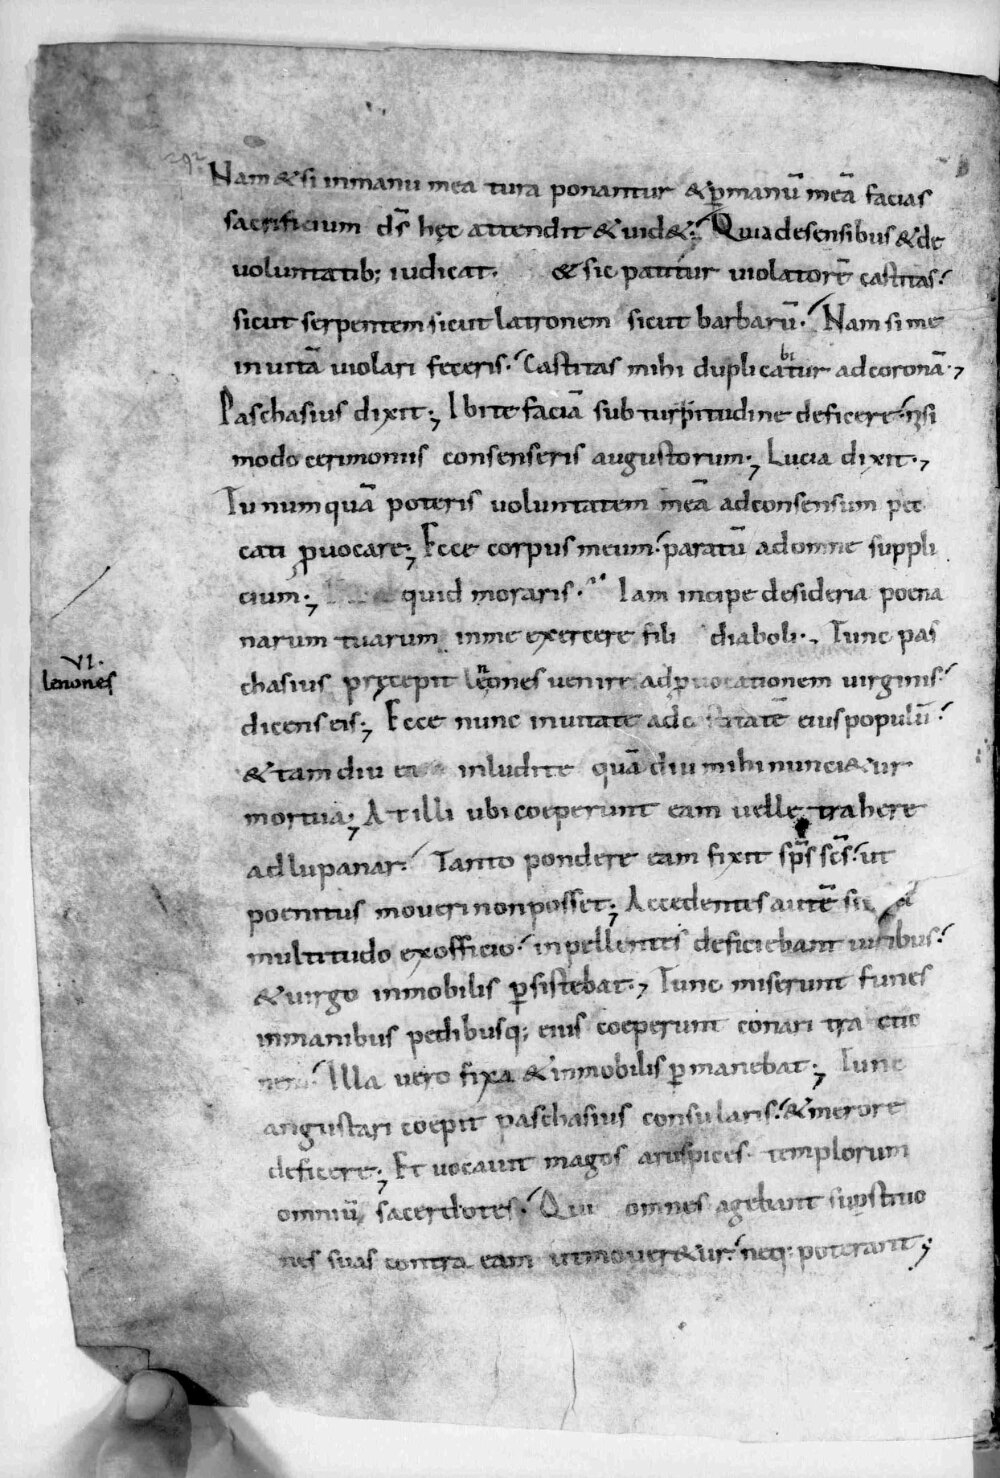 292
Nam & si inmanu mea tura ponantur & p̄manū meā facias
sacrificium ds̄ hęc attendit & uid&; Quia desensibus & de
uoluntatib; iudicat. & sic patitur uiolatorē castitas.
sicut serpentem sicut latronem sicut barbarū. Nam si me
inuitā uiolari feceris. Castitas mihi duplicatur adcoronā.,
bi
Paschasius dixit; Ibi te faciā sub turpitudine deficere. nisi
modo cerimoniis consenseris augustorum; Lucia dixit.,
Tu numquā poteris uoluntatem meā adconsensum pec
cati p̄uocare; Ecce corpus meum. paratū adomne suppli
cium; quid moraris. Iam incipe desideria poena
narum tuarum inme exercere fili diaboli., Tunc pas
VI.
lenones
chasius pręcepit uenire ad p̄uocationem uirginis.
dicens eis; Ecce nunc inuitate ad eius populū.
& tam diu inludite quādiu mihi nunci&ur
mortua; At illi ubi coeperunt eam uelle trahere
adlupanar. Tanto pondere eam fixit sp̄s sc̄s. ut
poenitus mouerinonposset; Accedentes autē
multitudo exofficio. inpellentes deficiebant uiribus.
& uirgo inmobilis p̄sistebat., Tunc miserunt funes
inmanibus pedibusq; eius coeperunt conari tractio
nem. Illa uero fixa & inmobilis p̄manebat; Tunc
angustari coepit paschasius consularis. & merore
deficere; Et uocauit magos aruspices. templorum
omniū sacerdotes. Qui omnes agebant sup̄stitio
nes suas contra eam utmouer&ur. neq; poterant;